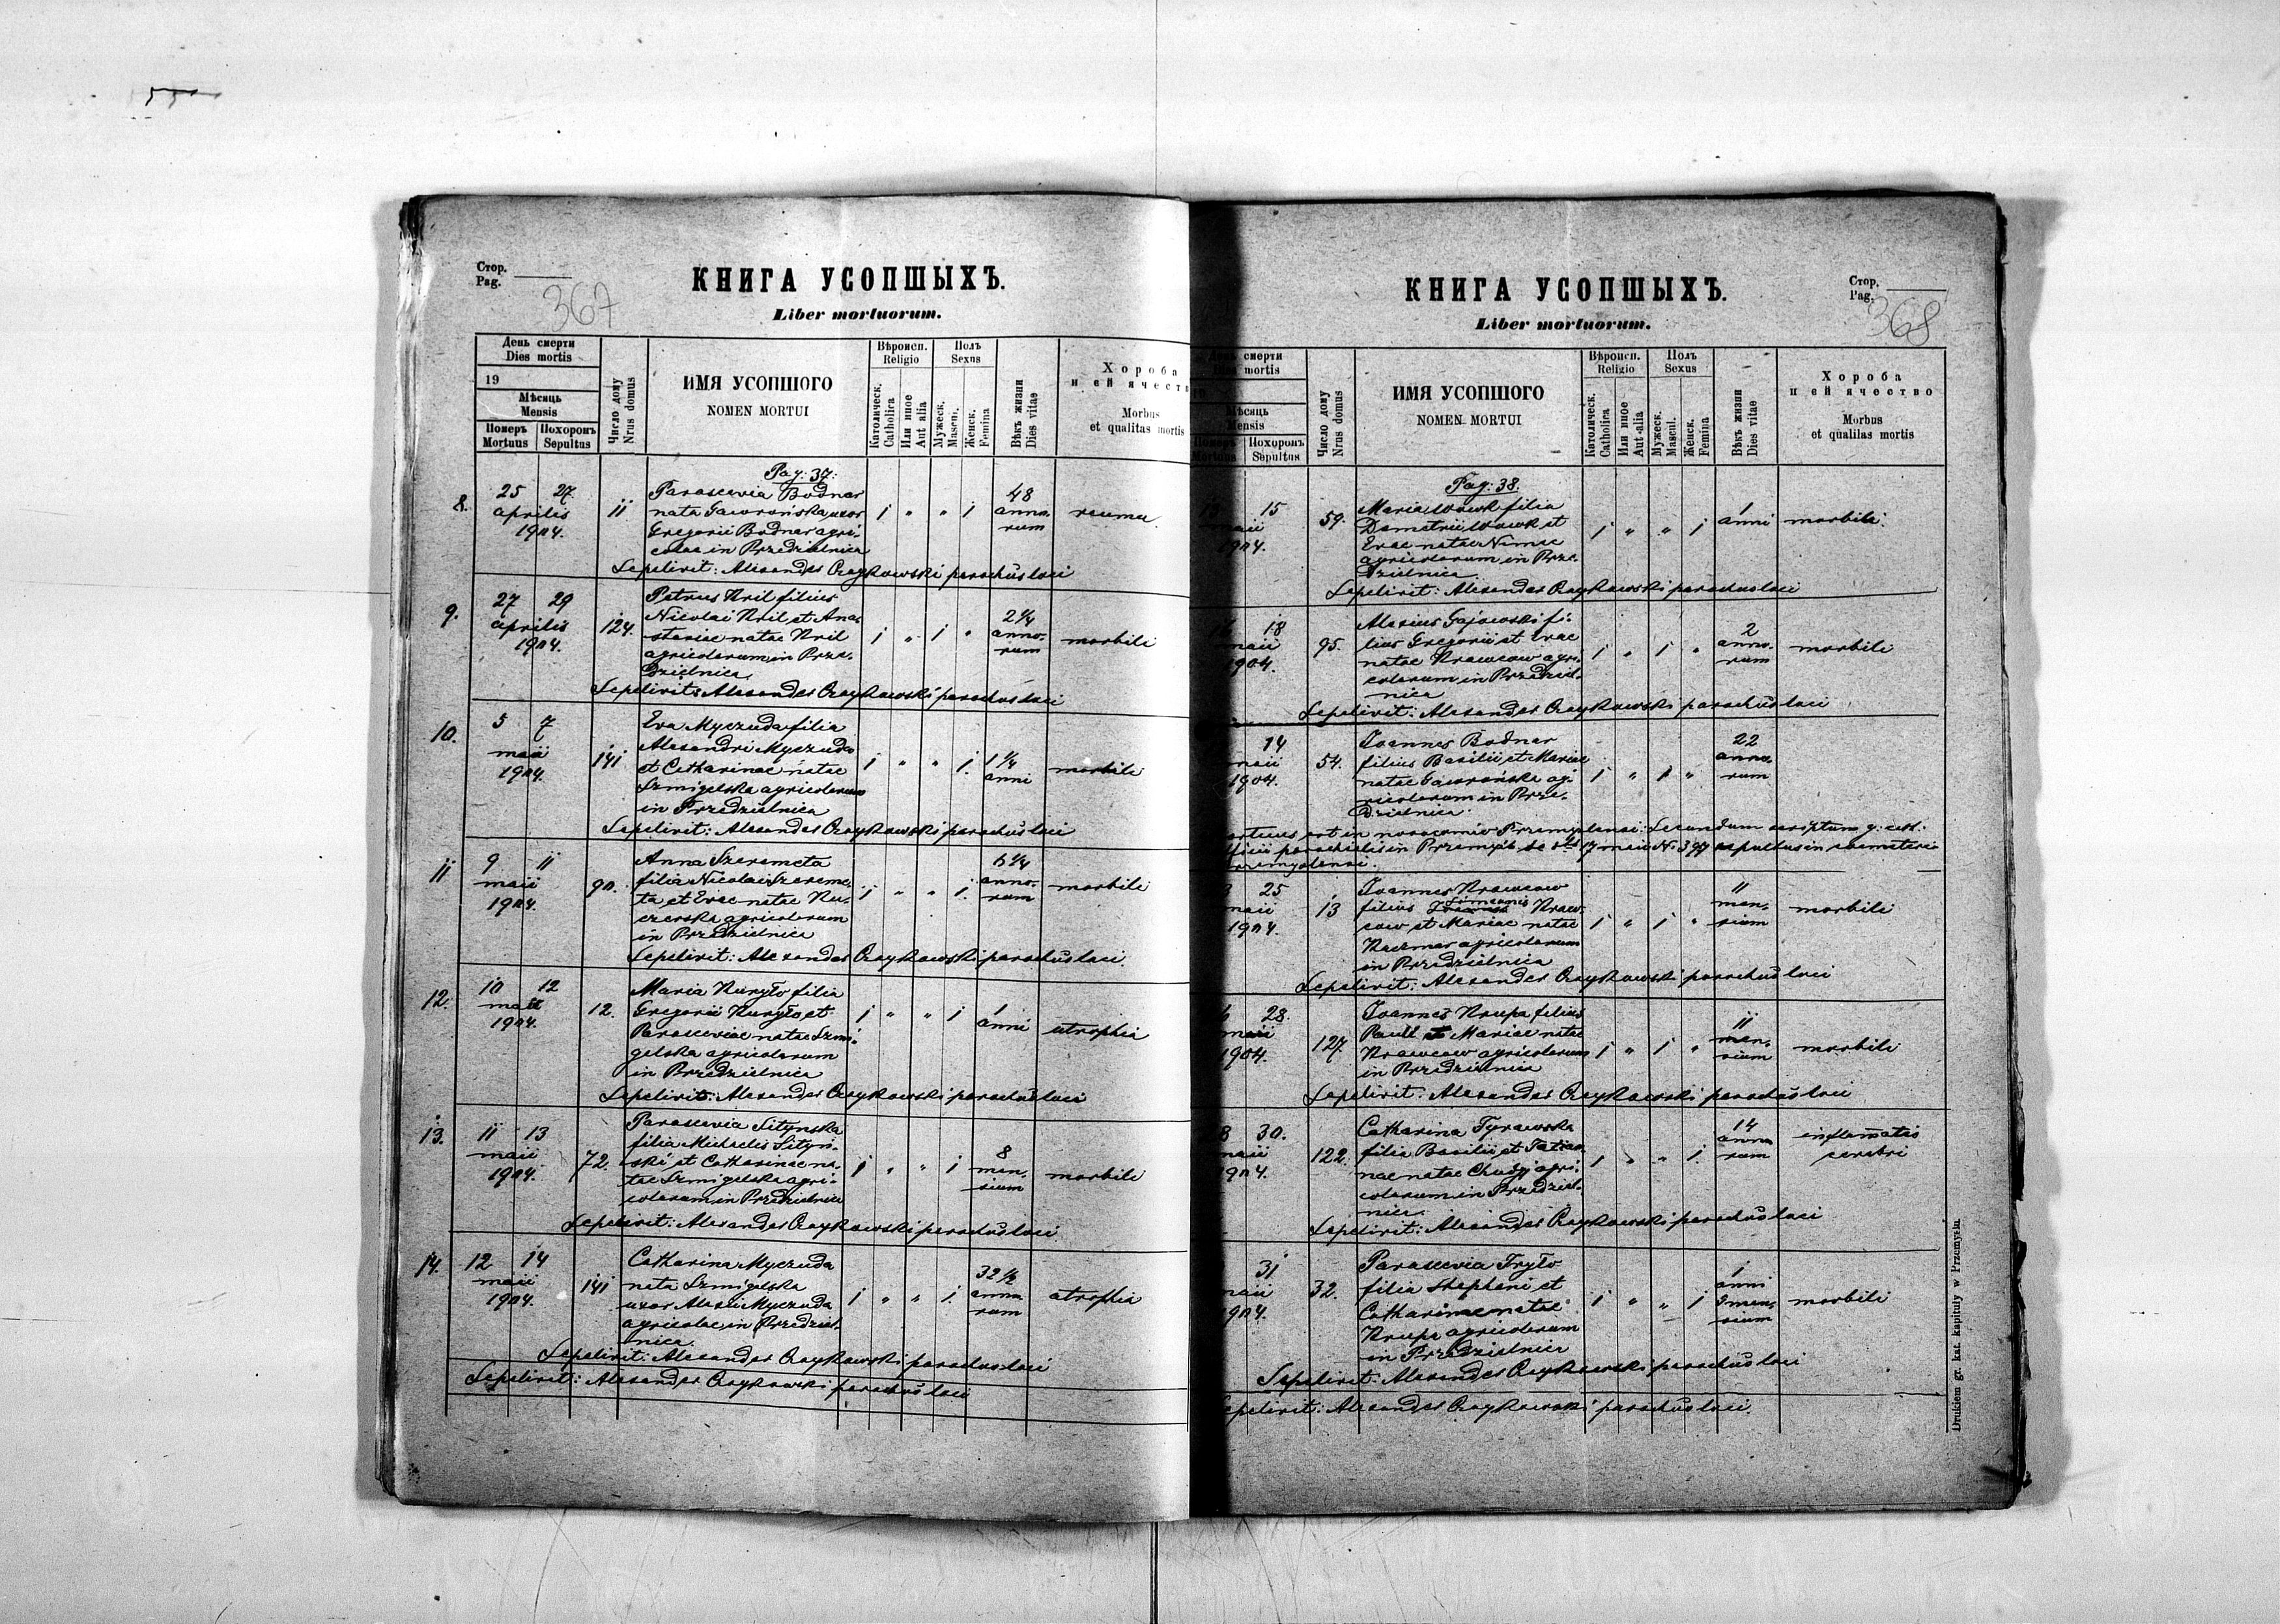 Стор.
Pag.
367
КНИГА УСОПШЫХЪ.
Liber mortuorum.
День смерти
Dies mortis
19
Мѣсяць
Mensis
Померъ Похоронъ
Mortuus Sepultus
Число дому
Nrus domus
ИМЯ УСОПШОГО
NOMEN MORTUI
Вѣроисп.
Religio
Католическ.
Catholica
Или иное
Aut alia
Полъ
Sexus
Мужеск.
Mascul.
Женск.
Femina
Вѣкъ жизни
Dies vitae
Хороба
и ей ячество
Morbus
et qualitas mortis
Pag: 37:
8. 25 27 aprilis 1904. 11
Parascevia Bodnar
nata Gaworońska, uxor
Gregorii Bodnar agri-
colae in Przedzielnica
1 " " 1 48 anno-
rum reuma
Sepelivit: Alexander parochus loci
9. 27 29 aprilis 1904. 124.
Petrus Kril filius
Nicolai Kril et Ana-
stasiae natae Kril
agricolarum in Prze-
dzielnica
1 " 1 " 2 1/4 anno-
rum morbili
Sepelivit: Alexander parochus loci
10. 5 7 maii 1904. 141
Eva Myczuda filia
Alexandri Myczuda
et Catharinae natae
Szmigelska agricolarum
in Przedzielnica
1 " " 1. 1 1/4 anni morbili
Sepelivit: Alexander parochus loci
11 9 11 maii 1904. 90.
Anna Szeremeta
filia Nicolai Szereme-
ta et Evae natae Ku-
czerska agricolarum
in Przedzielnica
1 " " 1. anno-
rum morbili
Sepelivit: Alexander parochus loci.
12. 10 12 maii 1904. 12.
Maria Kuryło filia
Gregorii Kuryło et
Parasceviae natae Szmi-
gelska agricolarum
in Przedzielnica
1 " " 1 1 anni atrophia
Sepelivit: Alexander parochus loci
13. 11 13 maii 1904. 72.
Parascevia Sitynska
filia Michaelis Sityn-
ski et Catharinae na-
tae Szmigelska agri-
colarum in Przedzielnica
1 " " 1 8 men-
sium morbili
Sepelivit: Alexander parochus loci
14. 12 14 maii 1904. 141
Catharina Myczuda
nata Szmigelska
uxor Alexii Myczuda
agricolae in Przedziel-
nica.
1 " " 1. 32 1/2 anno
rum atrophia
Sepelivit: Alexander parochus loci
Sepelivit: Alexander parochus loci
Стор.
Pag.
368
КНИГА УСОПШЫХЪ.
Liber mortuorum.
смерти
mortis
Мѣсяць
Mensis
Похоронъ
Sepultus
Число дому
Nrus domus
ИМЯ УСОПШОГО
NOMEN MORTUI
Вѣроисп.
Religio
Католическ.
Catholica
Или иное
Aut alia
Полъ
Sexus
Мужеск.
Mascul.
Женск.
Femina
Вѣкъ жизни
Dies vitae
Хороба
и ей ячество
Morbus
et qualitas mortis
Pag: 38.
15 maii 1904. 59.
Maria Wowk filia
Demetrii Wowk et
Evae natae Nimac
agricolarum in Prze-
dzielnica
1 " " 1 1 anni morbili.
Sepelivit: Alexander parochus loci
18 maii 1904. 95.
Alexius Gajowski fi-
lius Gregorii et Evae
natae Krawcow agri-
colarum in Przedziel-
nica
1 " 1 " 2 anno-
rum morbili
Sepelivit: Alexander parochus loci
14 maii 1904. 54.
Joannes Bodnar
filius Basilii et Mariae
natae Gaworońska ag-
ricolarum in Prze-
dzielnica
1 " 1 " 22 anno-
rum
est in nosocomio Przemyslensi: Secundum scriptum g: cath:
parochialis in Przemyśl 17 maii N: 397 sepultus in coemeterio
25 maii 1904. 13
Joannes Krawcow
filius Simeonis Kraw-
cow et Mariae natae
Kaczmar agricolarum
in Przedzielnica
1 " 1 " 11 men-
sium morbili
Sepelivit: Alexander parochus loci
28. maii 1904. 127.
Joannes Krupa filius
Pauli et Mariae natae
Krawcow agricolarum
in Przedzielnica
1 " 1 " 11 men-
sium morbili
Sepelivit: Alexander parochus loci
30. maii 1904. 122.
Catharina Tyrawska
filia Basilii et Tatia-
nae natae Chudyj agri-
colarum in Przedziel-
nica.
1 " " 1. 14 anno
rum
cerebri
Sepelivit: Alexander parochus loci
31 maii 1904. 32.
Parascevia Fryło
filia Stephani et
Catharinae natae
Krupa agricolarum
in Przedzielnica
1 " " 1 1 anni
9 men-
sium morbili
Sepelivit: Alexander parochus loci
Sepelivit: Alexander parochus loci.
Drukiem gr. kat. kapituły w Przemyślu.